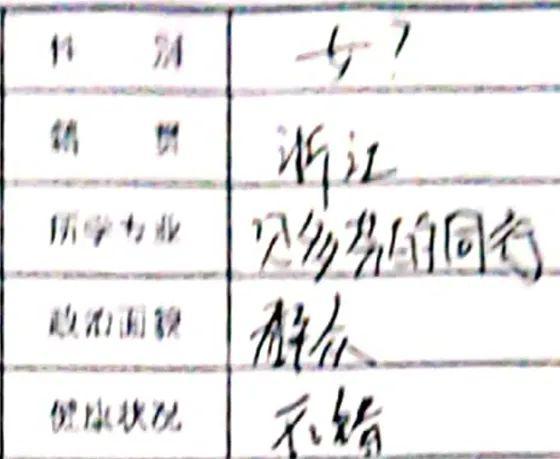 性 别 女?
籍 贯 浙江
所学专业 贝多芬的同行
政治面貌 群众
健康状况 不错